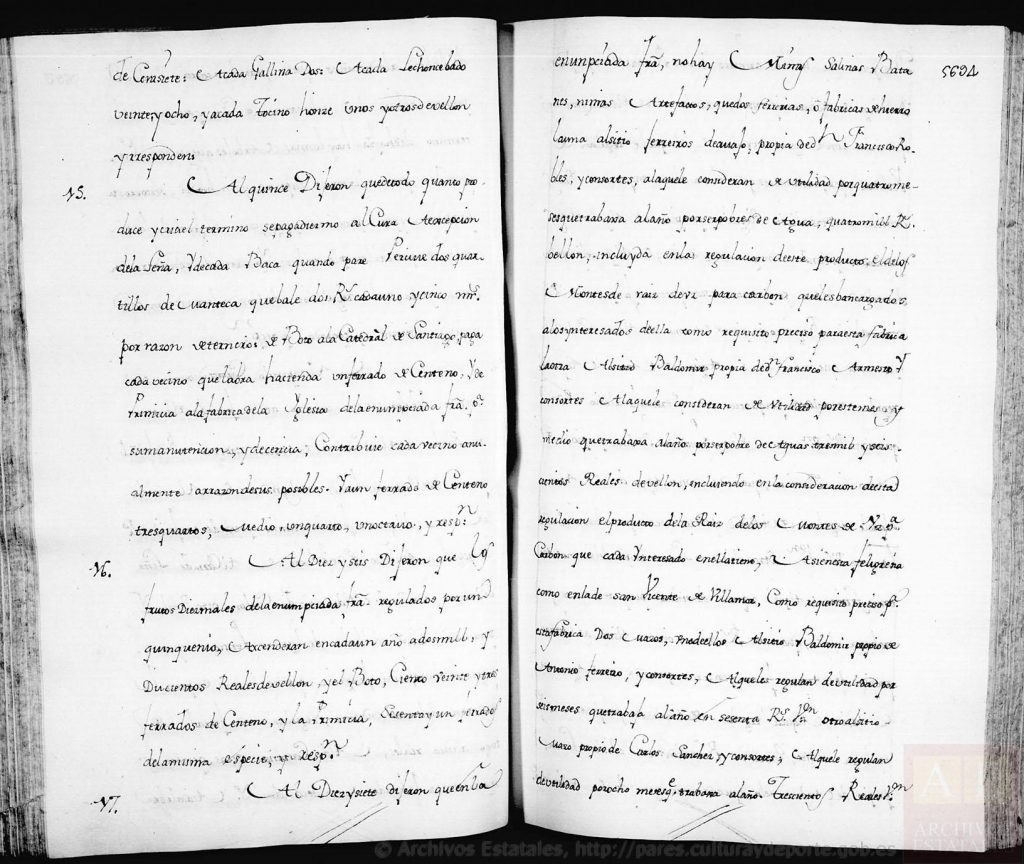 de Centetete: Acada Gallina Dos: Acada Lechoncebado
veinte y ocho, y acada Tocino honze unos y otros de vellon
y rresponden:
15. Al quince Dijeron que todo quanto pro-
duce y cria el termino se paga diezmo al Cura A excepcion
dela Leña, Y de cada Baca quando pare Percive dos quar-
tillos de Manteca que bale dos Rs cada uno y cinco mrs.
por razon de ternero: de Boto ala Catedral de Santiago, paga
cada vecino que labra hacienda un ferrado de Centeno, Y de
Primicia ala fabrica dela Yglesia dela enunpciada frâ. pª
su manutencion, y decencia, Contribuie cada vecino anu-
almente a rrazon de sus posibles. Ya un ferrado de Centeno,
tres quartos, Medio, un quarto, un octavo, y respn
16. Al Diez y seis Dijeron que los
frutos Diezmales dela enunpciada frâ. regulados por un
quinquenio, Ascenderan en cada un año a dos mill, y
Ducientos Reales de vellon, y el Boto, Ciento Veinte y tres
ferrados de Centeno, y la Primicia, Sesenta y un ferrados
dela misma especie, y respn
17. Al Diez y siete dijeron que en la
enunpciada frâ, no hay Minas Salinas Bata
nes, ni mas Artefactos, que dos ferrerias, ô fabricas de hierro
la una al sitio ferreiros de avajo, propia de dn Francisco Ro-
bles, y consortes, ala que le consideran de utilidad por quatro me-
ses que trabaxa al año por ser pobres de Agua, quatro mill Rs.
bellon, incluyda en la regulacion de este producto, el delos
Montes de raiz de Vz para carbon que les han cargado
alos interesados de ella como requisito preciso para esta fabrica
la otra Al sitio Baldomir propia de dn Francisco Armesto Y
consortes Ala que le consideran de Utilidad por este mes y
medio que trabaxa al año por ser pobre de Aguas tres mill y seis-
cientos Reales de vellon, incluiendo en la consideracion de esta
regulacion el producto dela Raiz delos Montes de Vz pª
Carbon que cada Ynteresado en ella tiene, Asi en esta feligresia
como en la de san Vicente de Villamor, Como requisito preciso pª.
esta fabrica Dos Mazos, uno de ellos Al sitio Baldomir propio de
Antonio ferreiro, y consortes, Al que les regulan de utilidad por
seis meses que trabaja al año en sesenta Rs. Vn otro al sitio
Mazo propio de Carlos Sanchez y consortes, Al que le regulan
de utilidad por ocho meses q. trabaxa al año. Trescientos Reales Vn
5694
© Archivos Estatales, http://pares.culturaydeporte.gob.es
ARCHIVOS
ESTATALES